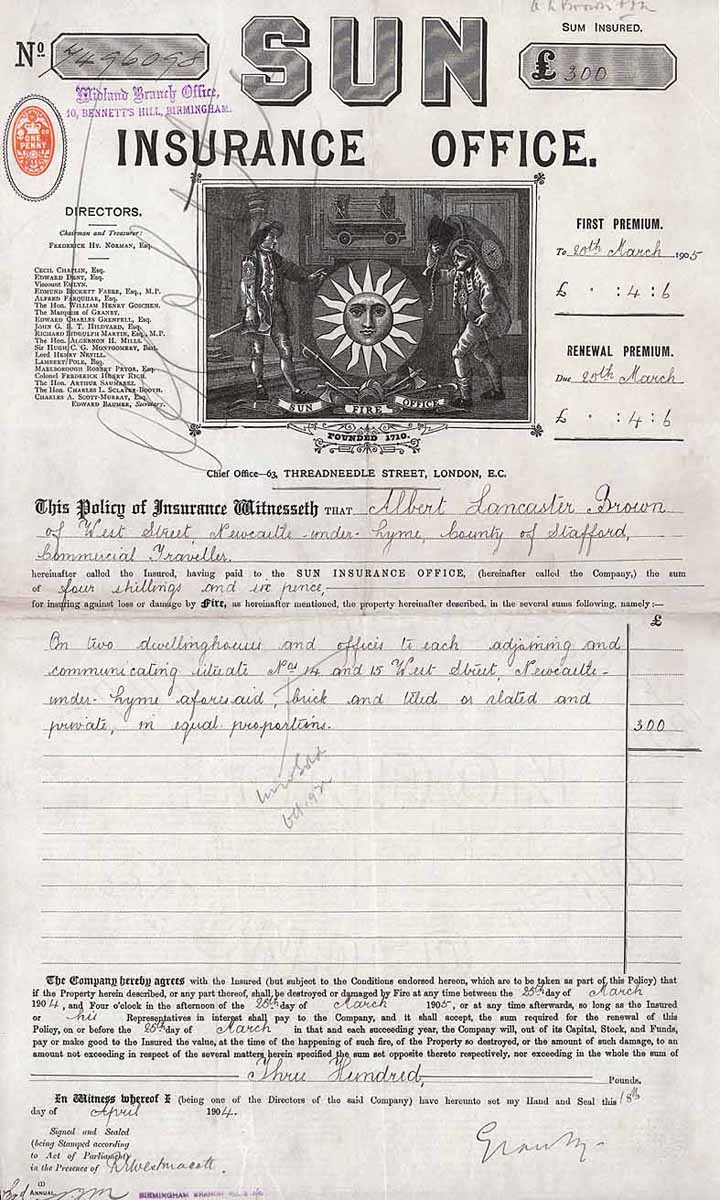 SUM INSURED.
No 7496098
SUN
£ 300
Midland Branch Office,
10, BENNETT'S HILL, BIRMINGHAM.
ONE
PENNY
INSURANCE OFFICE.
DIRECTORS.
Chairman and Treasurer:
FREDERICK HY. NORMAN, Esq.
CECIL CHAPLIN, Esq.
EDWARD DENT, Esq.
Viscount EMLYN.
EDMUND BECKETT FABER, Esq., M.P.
ALFRED FARQUHAR, Esq.
The Hon. WILLIAM HENRY GOSCHEN.
The Marquess of GRANBY.
EDWARD CHARLES GRENFELL, Esq.
JOHN G. B. T. HILDYARD, Esq.
RICHARD BIDDULPH MARTIN, Esq., M.P.
The Hon. ALGERNON H. MILLS.
Sir HUGH C. G. MONTGOMERY, Bart.
Lord HENRY NEVILL.
LAMBERT POLE, Esq.
MARLBOROUGH ROBERT PRYOR, Esq.
Colonel FREDERICK HENRY RICH.
The Hon. ARTHUR SAUMAREZ.
The Hon. CHARLES L. SCLATER-BOOTH.
CHARLES A. SCOTT-MURRAY, Esq.
EDWARD BAUMER, Secretary.
SUN FIRE OFFICE
FOUNDED 1710.
FIRST PREMIUM.
To 20th March 1905
£ " : 4 : 6
RENEWAL PREMIUM.
Due 20th March
£ " : 4 : 6
Chief Office—63, THREADNEEDLE STREET, LONDON, E.C.
This Policy of Insurance Witnesseth THAT Albert Lancaster Brown
of West Street, Newcastle-under-Lyme, County of Stafford,
Commercial Traveller.
hereinafter called the Insured, having paid to the SUN INSURANCE OFFICE, (hereinafter called the Company,) the sum
of four shillings and six pence,
for insuring against loss or damage by Fire, as hereinafter mentioned, the property hereinafter described, in the several sums following, namely:—
£
On two dwellinghouses and offices to each adjoining and
communicating situate Nos 14 and 15 West Street, Newcastle-
under-Lyme aforesaid, brick and tiled or slated and
private, in equal proportions. 300
The Company hereby agrees with the Insured (but subject to the Conditions endorsed hereon, which are to be taken as part of this Policy) that
if the Property herein described, or any part thereof, shall be destroyed or damaged by Fire at any time between the 25th day of March
1904, and Four o'clock in the afternoon of the 25th day of March 1905, or at any time afterwards, so long as the Insured
or his Representatives in interest shall pay to the Company, and it shall accept, the sum required for the renewal of this
Policy, on or before the 25th day of March in that and each succeeding year, the Company will, out of its Capital, Stock, and Funds,
pay or make good to the Insured the value, at the time of the happening of such fire, of the Property so destroyed, or the amount of such damage, to an
amount not exceeding in respect of the several matters herein specified the sum set opposite thereto respectively, nor exceeding in the whole the sum of
Three Hundred, Pounds.
In Witness whereof I (being one of the Directors of the said Company) have hereunto set my Hand and Seal this 18th
day of April 1904.
Signed and Sealed
(being Stamped according
to Act of Parliament)
in the Presence of
Granby
(1)
ANNUAL